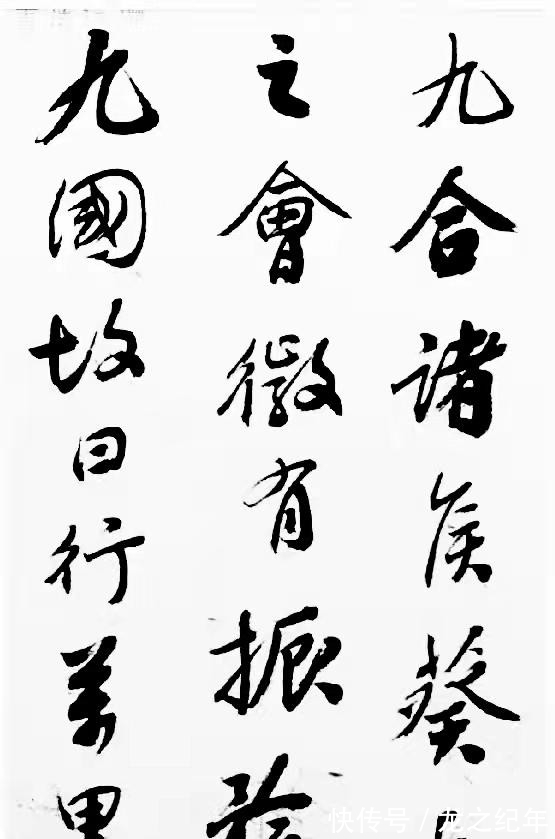 九合諸侯葵
之會微有振
九國故曰行萬
快传号 / 龙之纪年